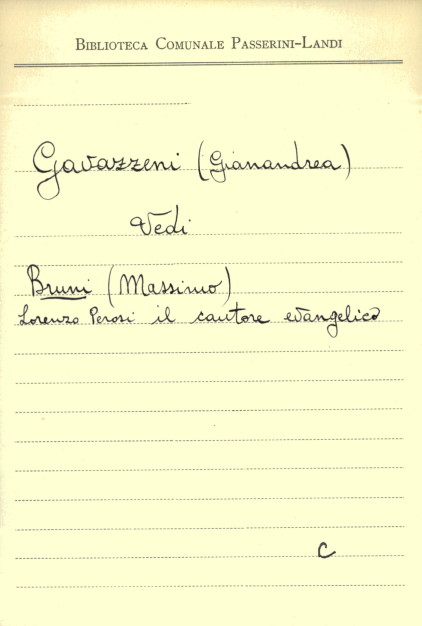 Biblioteca Comunale Passerini-Landi
Gavazzeni (Gianandrea)
Vedi
Bruni (Massimo)
Lorenzo Perosi il cantore evangelico
C